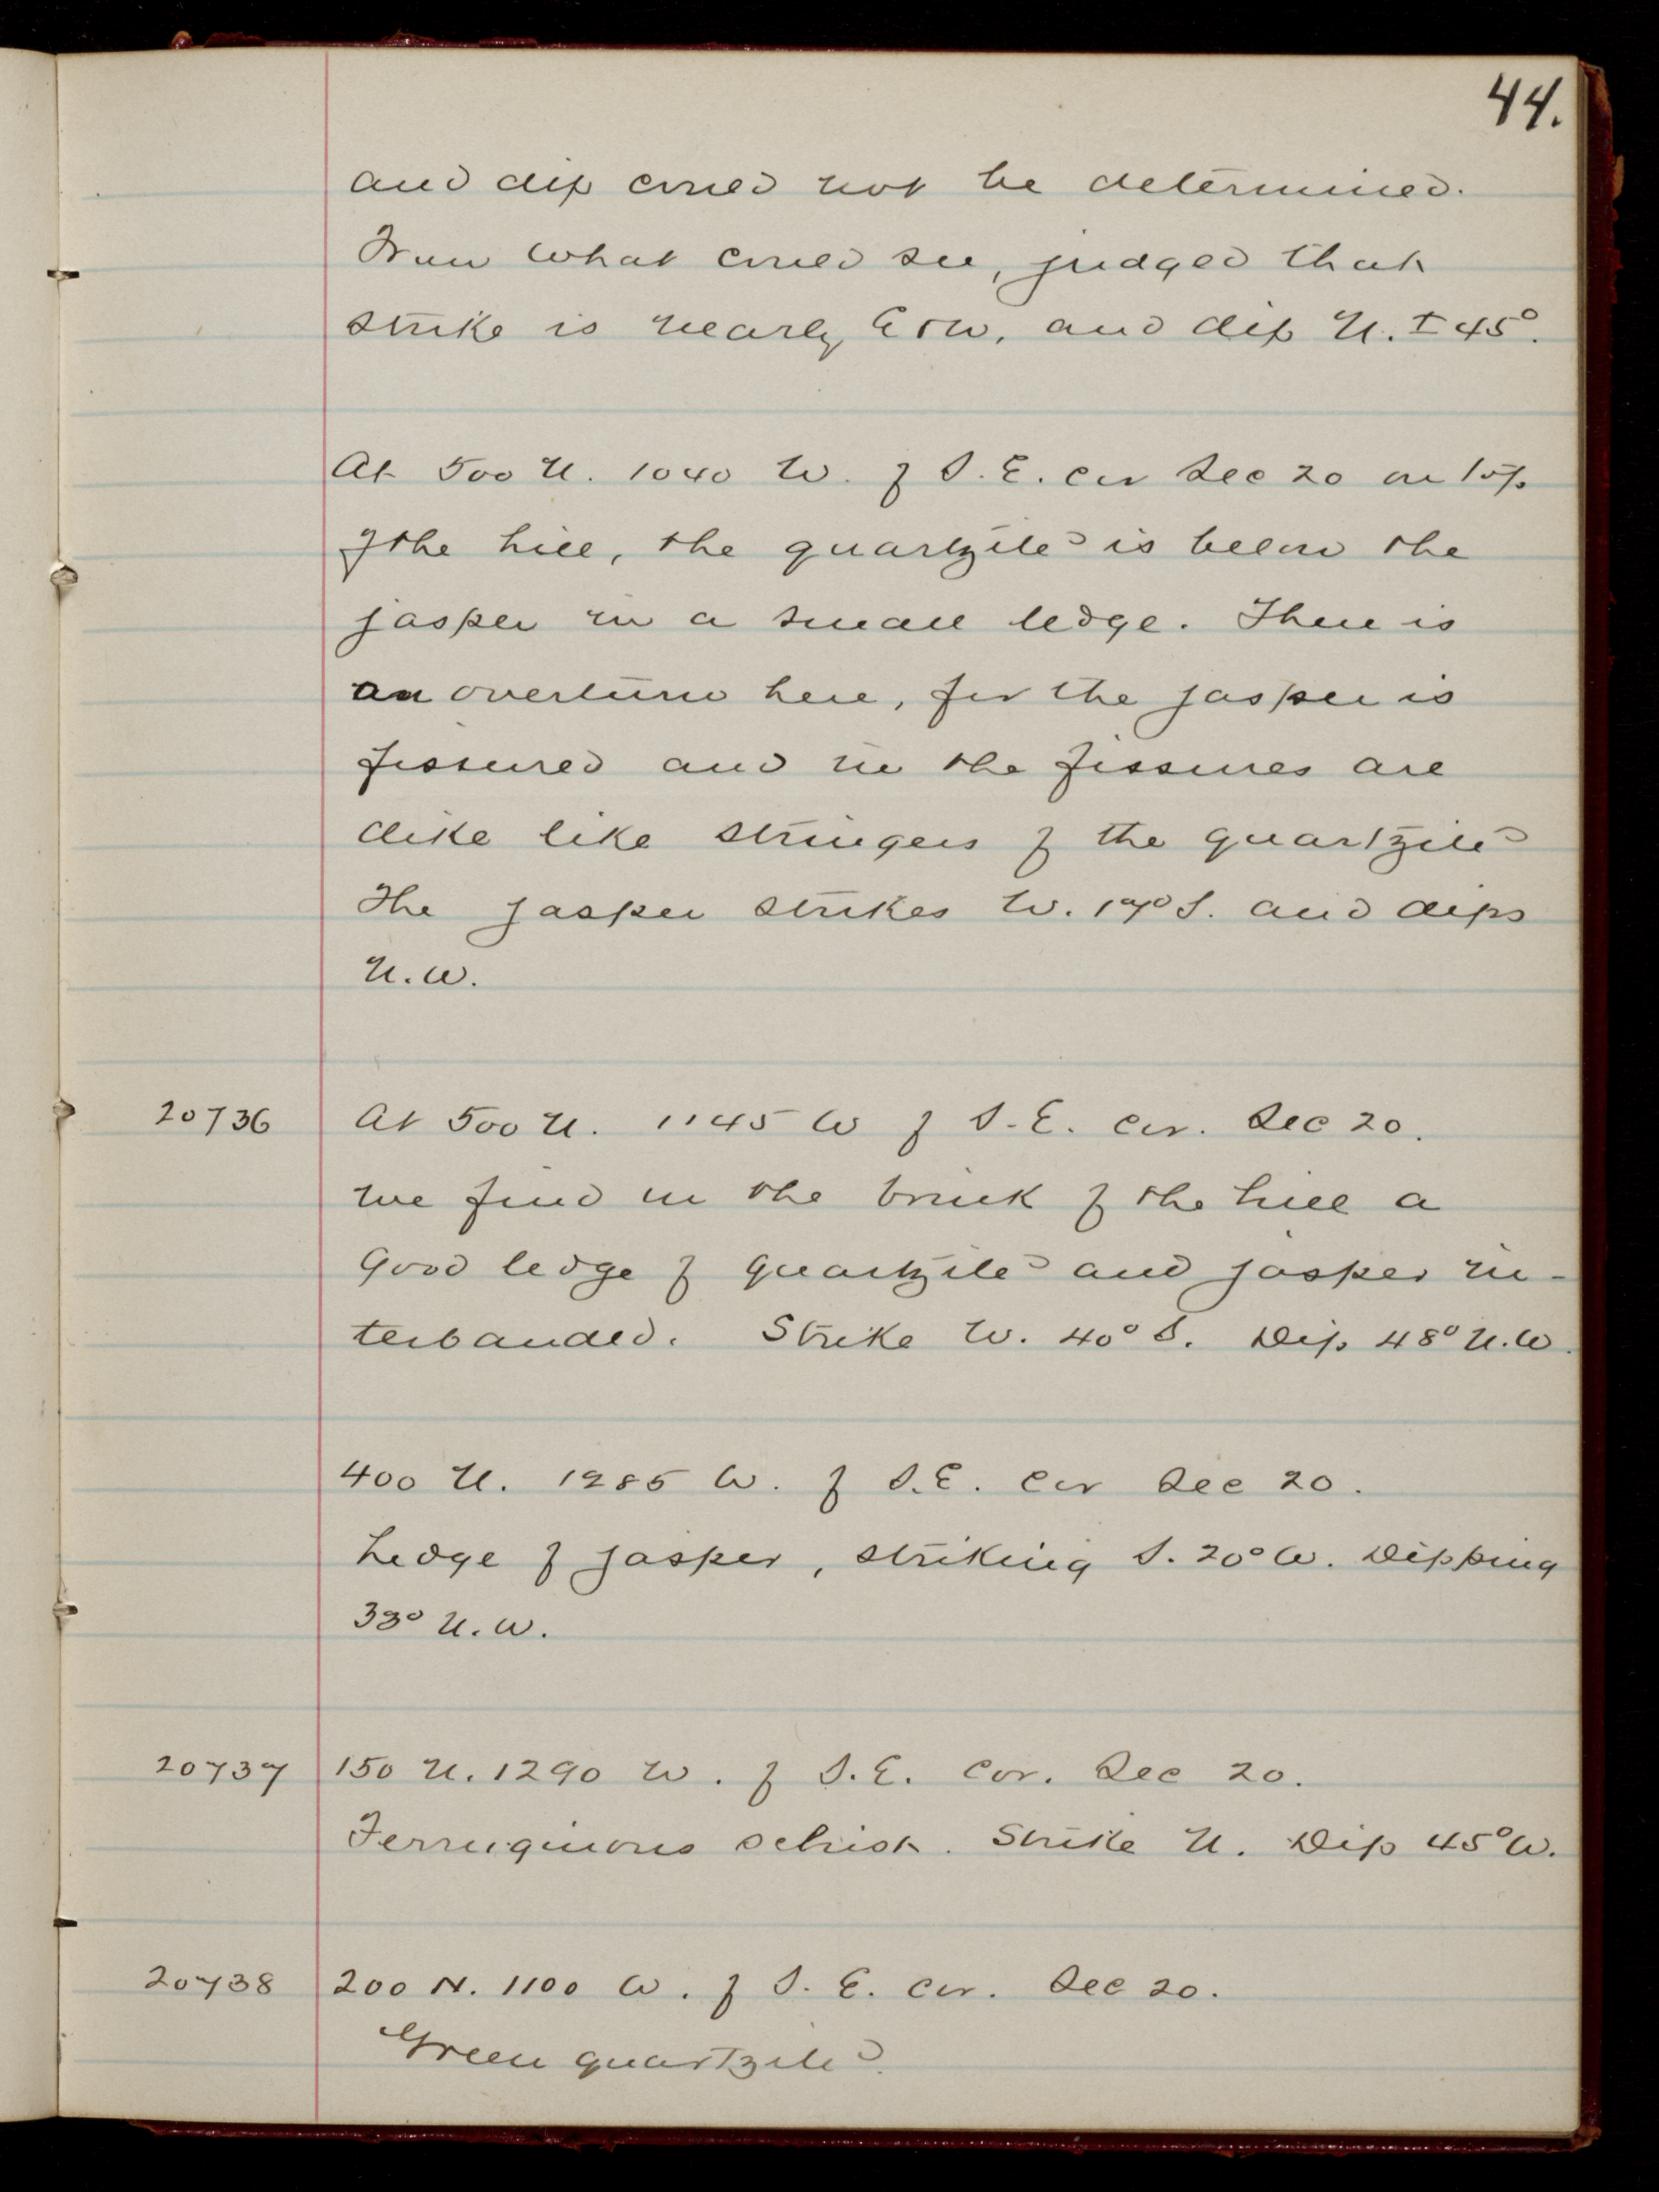 44.
and dip could not be determined.
From what could see, judged that
strike is nearly E & W, and dip N. ± 45°.
At 500 N. 1040 W. of S.E. cor Sec 20 on top
of the hill, the quartzite is below the
jasper in a small ledge. There is
an overturn here, for the jasper is
fissured and in the fissures are
dike like stringers of the quartzite
The jasper strikes W. 17° S. and dips
N.W.
20736 At 500 N. 1145 W of S.E. cor. Sec 20.
we find on the brink of the hill a
Good ledge of quartzite and jasper in-
terbanded. Strike W. 40° S. Dip 48° N.W.
400 N. 1285 W. of S.E. cor Sec 20.
Ledge of jasper, striking S. 20° W. Dipping
33° N.W.
20737 150 N. 1290 W. of S.E. Cor. Sec 20.
Ferruginous schist. Strike N. Dip 45° W.
20738 200 N. 1100 W. of S.E. cor. Sec 20.
Green quartzite.